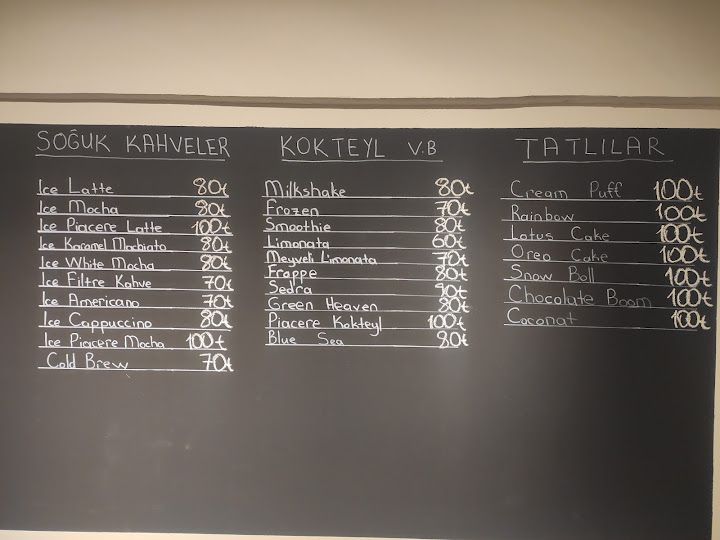 SOĞUK KAHVELER
Ice Latte 80₺
Ice Mocha 80₺
Ice Piacere Latte 100₺
Ice Karamel Machiato 80₺
Ice White Mocha 80₺
Ice Filtre Kahve 70₺
Ice Americano 70₺
Ice Cappuccino 80₺
Ice Piacere Mocha 100₺
Cold Brew 70₺
KOKTEYL V.B
Milkshake 80₺
Frozen 70₺
Smoothie 80₺
Limonata 60₺
Meyveli Limonata 70₺
Frappe 80₺
Sedra
Green Heaven 80₺
Piacere Kokteyl 100₺
Blue Sea 80₺
TATLILAR
Cream Puff 100₺
Rainbow 100₺
Lotus Cake 100₺
Oreo Cake 100₺
Snow Boll 100₺
Chocolate Boom 100₺
Coconat 100₺